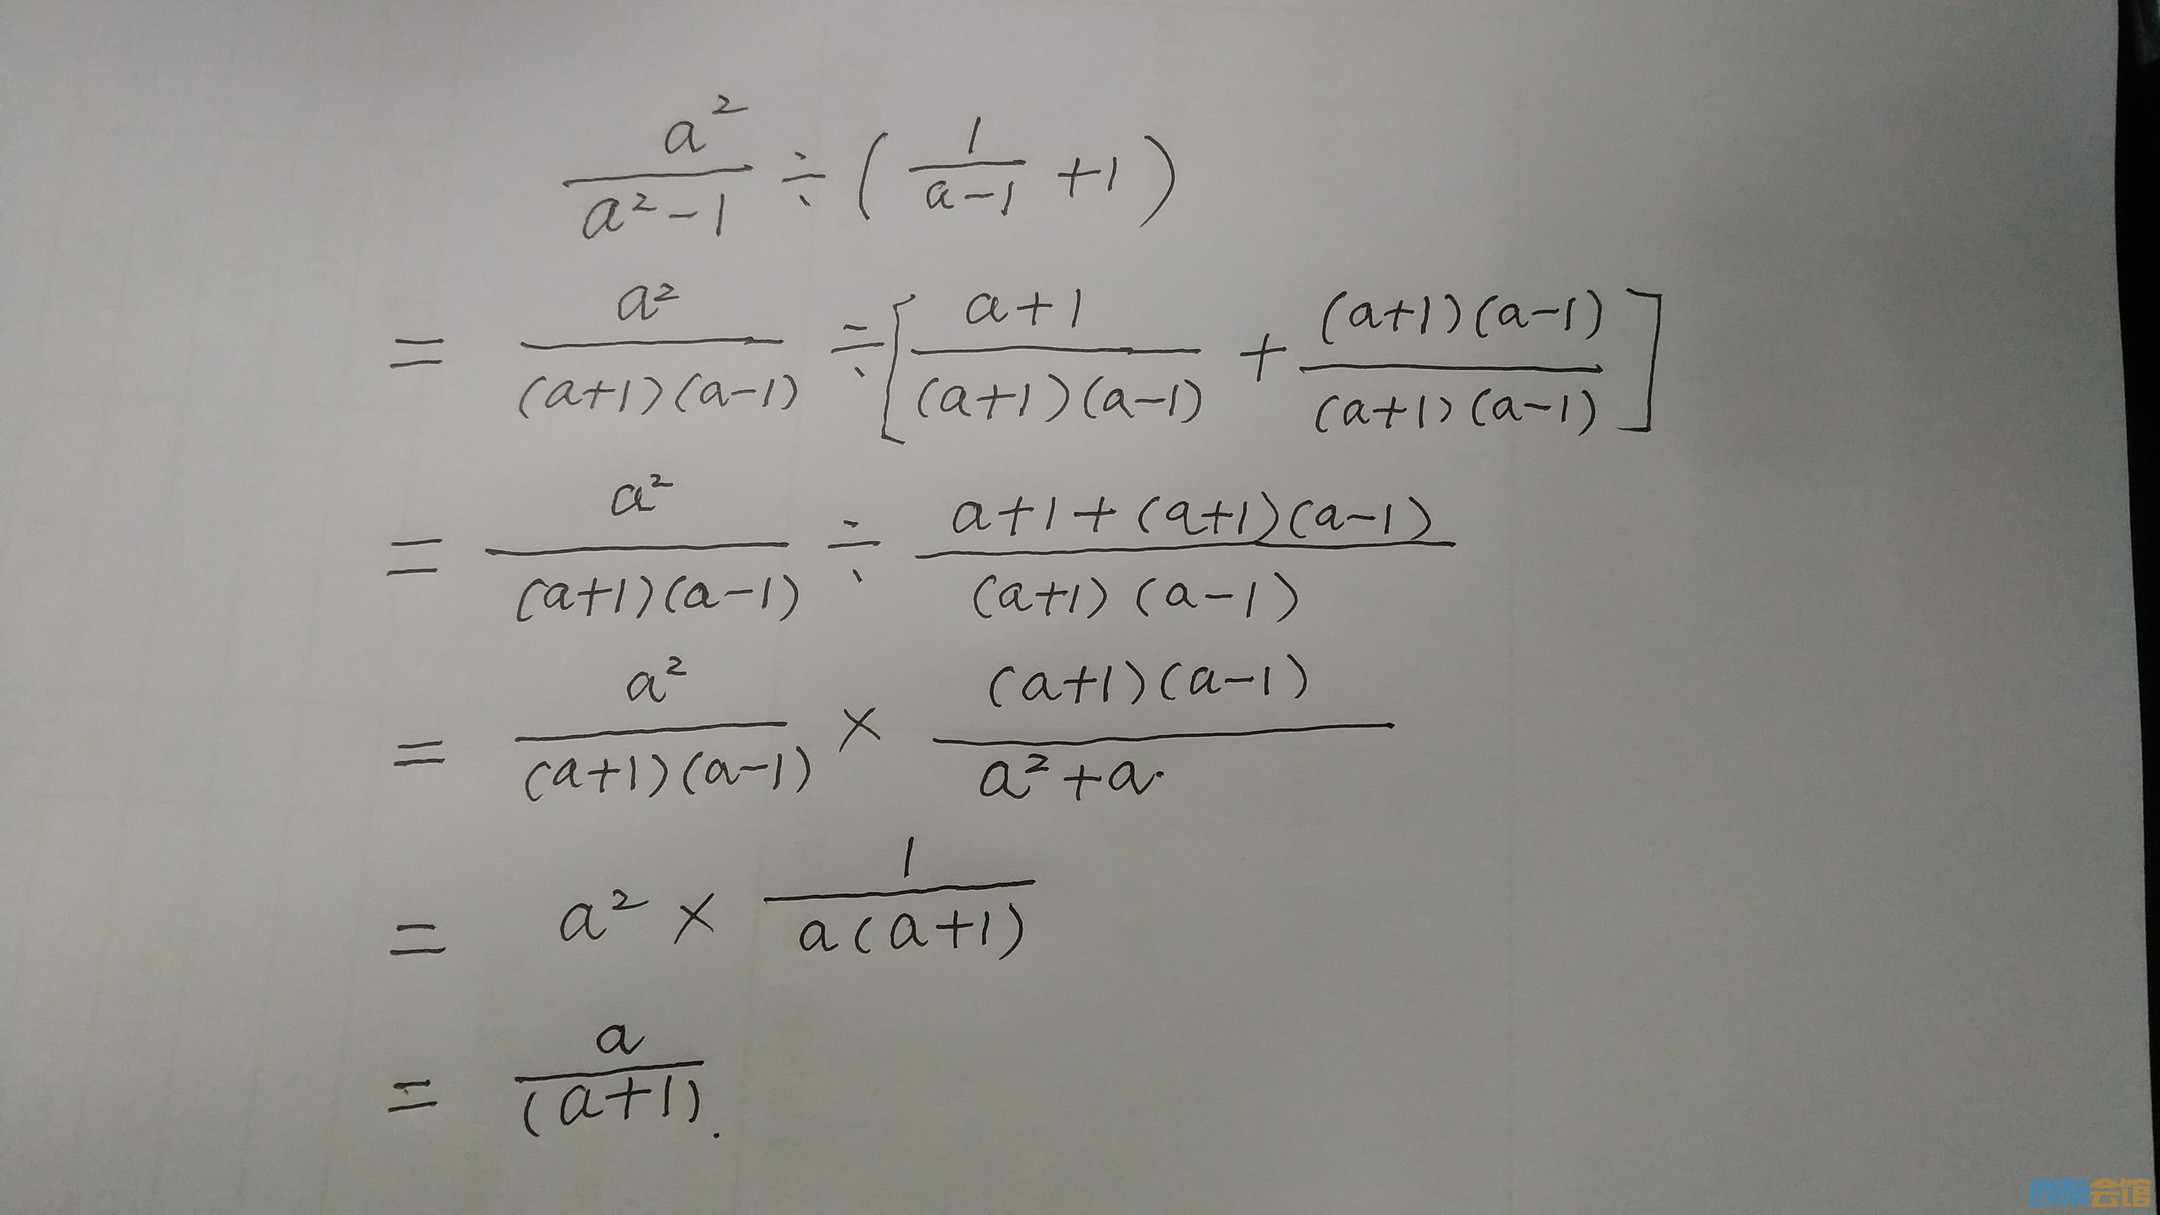 a²/(a²-1) ÷ (1/(a-1) +1)
= a²/((a+1)(a-1)) ÷ [(a+1)/((a+1)(a-1)) + ((a+1)(a-1))/((a+1)(a-1))]
= a²/((a+1)(a-1)) ÷ (a+1+(a+1)(a-1))/((a+1)(a-1))
= a²/((a+1)(a-1)) × ((a+1)(a-1))/(a²+a)
= a² × 1/(a(a+1))
= a/(a+1).
会馆